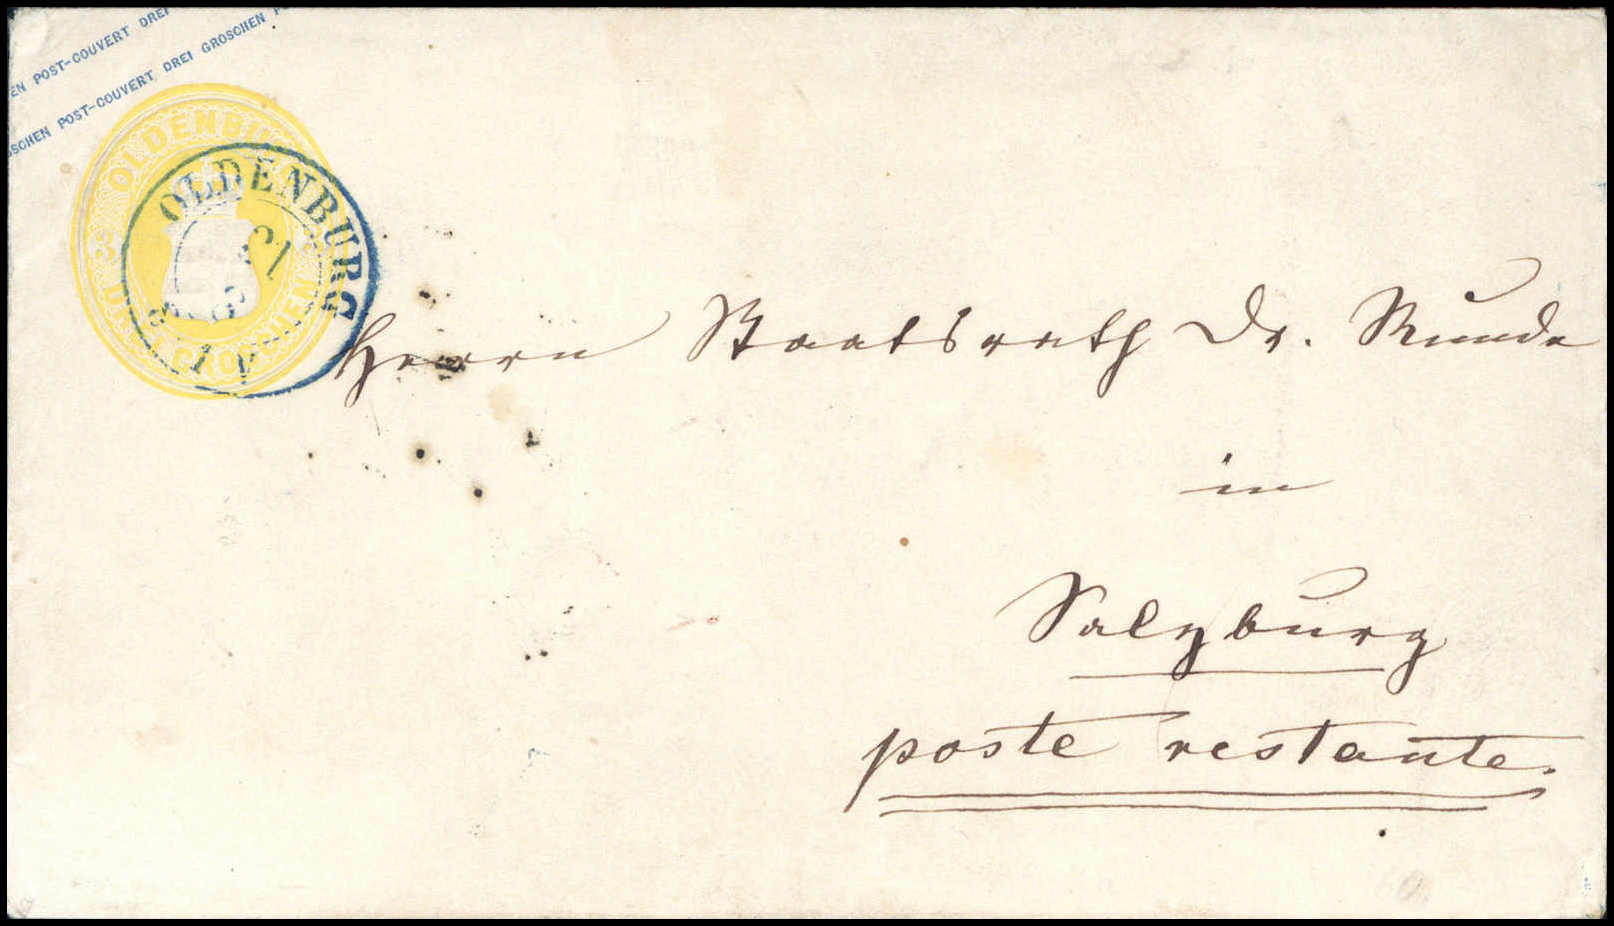 EN POST-COUVERT DREI
SCHEN POST-COUVERT DREI GROSCHEN P
OLDENBU
OLDENBURG
Herrn Staatsrath Dr. Runde
in
Salzburg
poste restante.